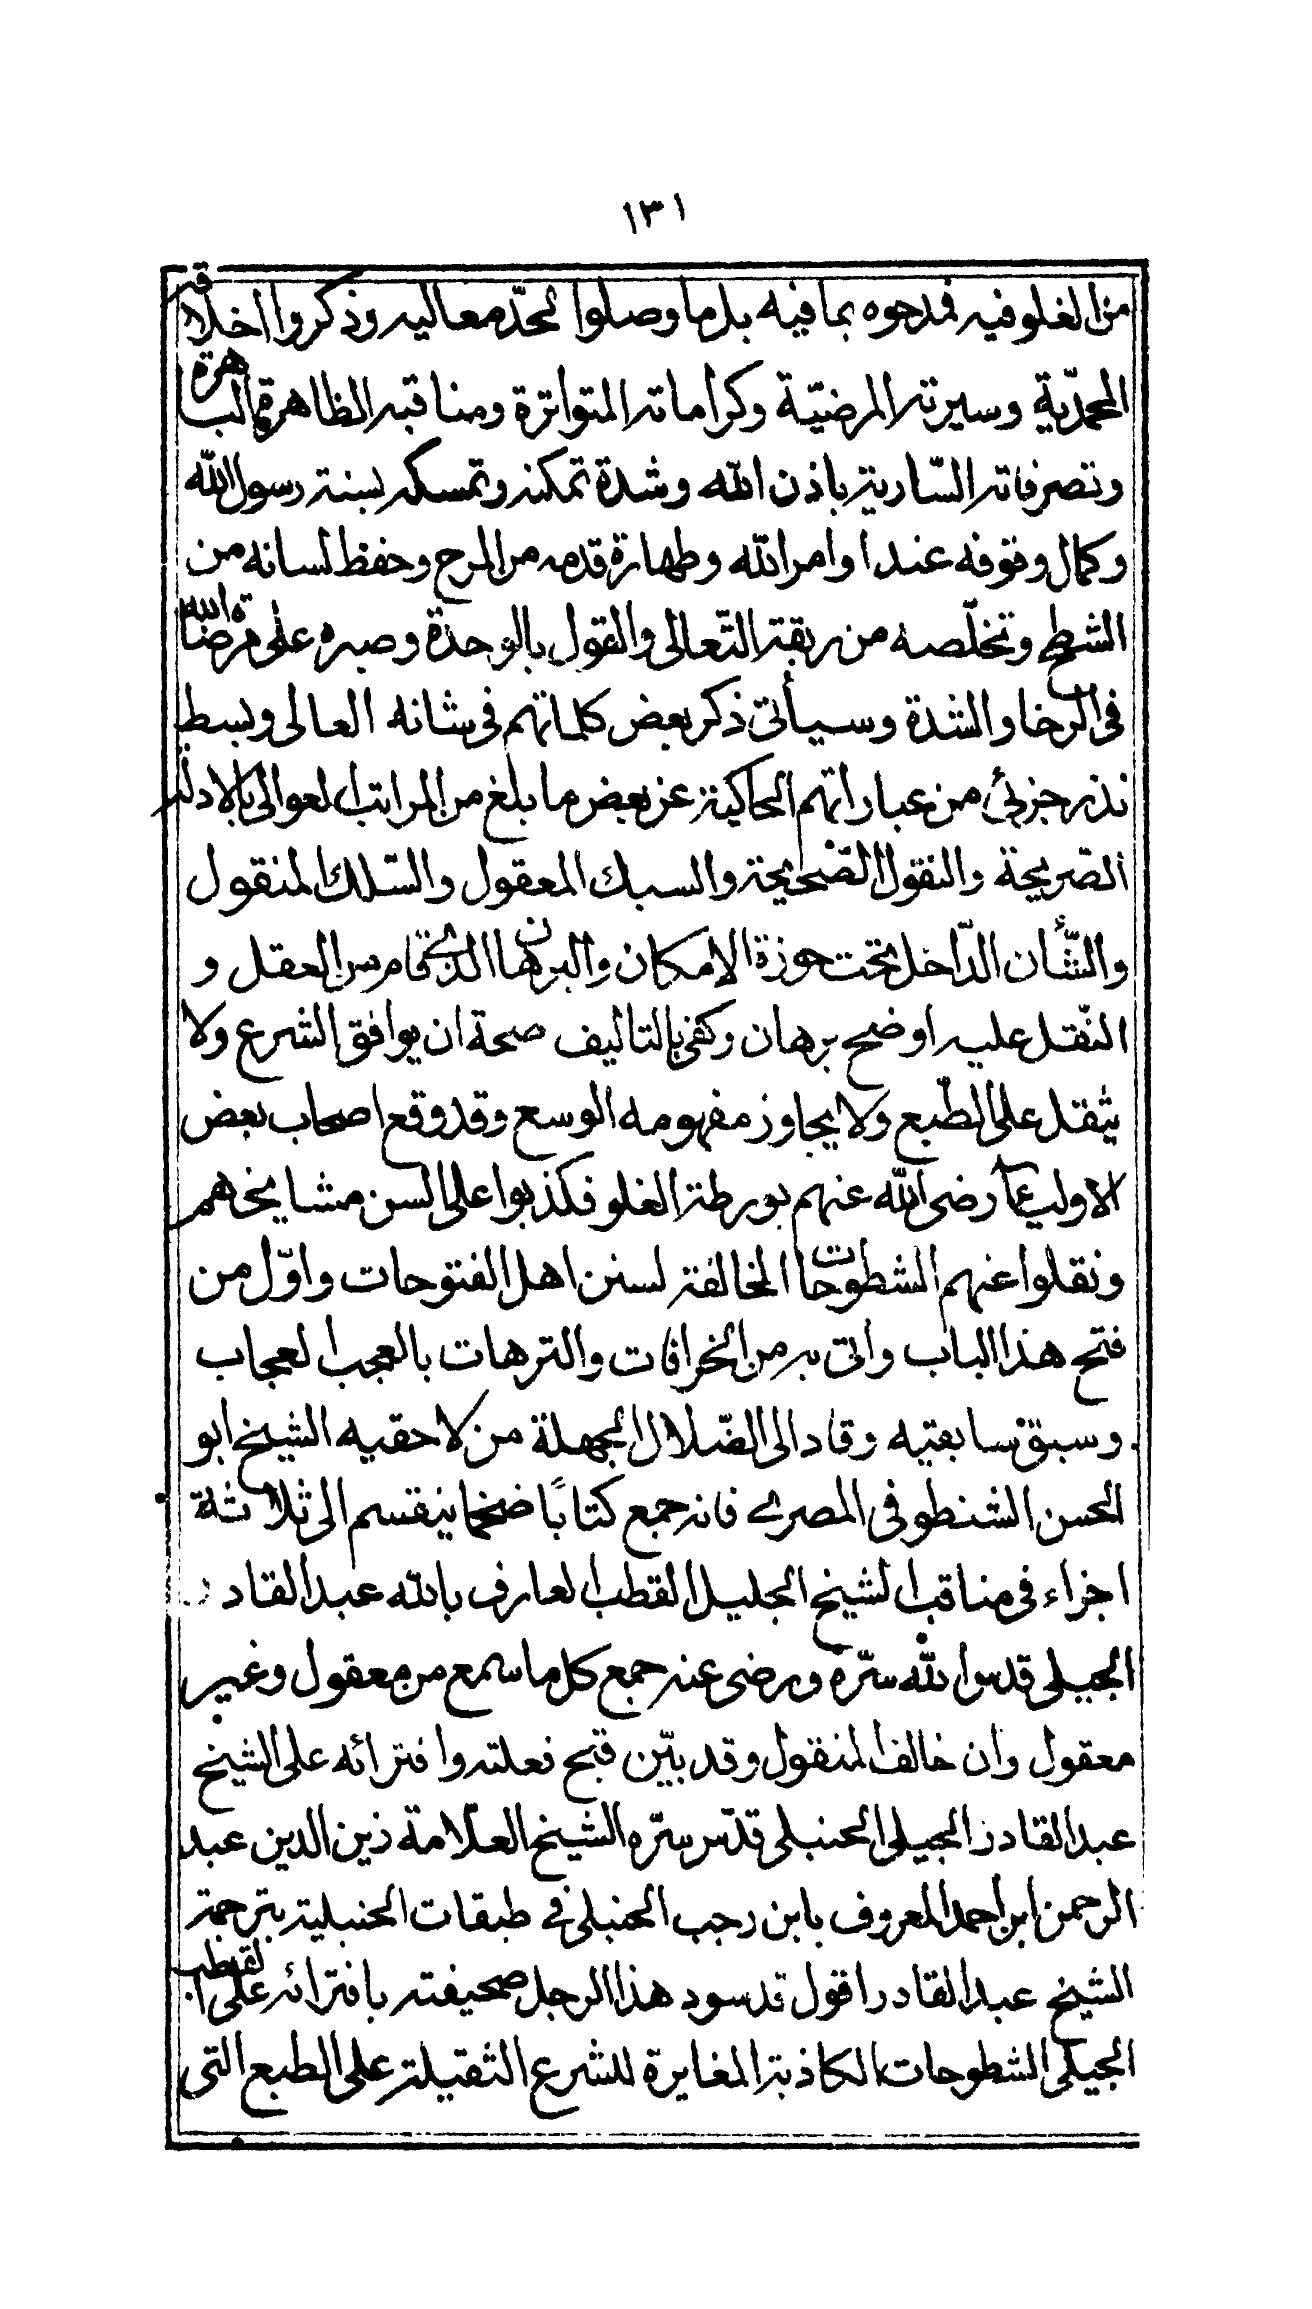 ١٣١
من الغلو فيه فمدحوه بما فيه بل ما وصلوا لحدّ معاليه وذكروا اخلاقه
المحمديّة وسيرته المرضيّة وكراماته المتواترة ومناقبه الظاهرة الباهرة
وتصرفاته السّارية باذن الله وشدة تمكنه وتمسكه بسنة رسول الله
وكمال وقوفه عند اوامر الله وطهارة قدمه من المرح وحفظ لسانه من
الشطح وتخلّصه من ربقة التّعالى والقول بالوحدة وصبره على مرضاة الله
فى الرخا والشدة وسيأتى ذكر بعض كلماتهم فى شانه العالى وبسط
نذر جزئى من عباراتهم الحاكية عن بعض ما بلغ من المراتب العوالى بالادلة
الصّريحة والنقول الصّحيحة والسبك المعقول والسّلك المنقول
والشّأن الدّاخل تحت حوزة الامكان والبرهان الذى قام من العقل و
النّقل عليه اوضح برهان وكفى بالتاليف صحة ان يوافق الشرع ولا
يثقل على الطّبع ولا يجاوز مفهومه الوسع وقد وقع اصحاب بعض
الاولياء رضى الله عنهم بورطة الغلو فكذبوا على السن مشايخهم
ونقلوا عنهم الشطوحات المخالفة لسنن اهل الفتوحات واوّل من
فتح هذا الباب واتى به من الخرافات والترهات بالعجب العجاب
وسبق سابقيه وقاد الى الضّلال الجهلة من لاحقيه الشيخ ابو
الحسن الشنطوفى المصرى فانه جمع كتابًا ضخما ينقسم الى ثلاثة
اجزاء فى مناقب الشيخ الجليل القطب العارف بالله عبد القادر
الجيلى قدس الله سرّه ورضى عنه جمع كل ما سمع من معقول وغير
معقول وان خالف المنقول وقد بيّن قبح فعلته وافترائه على الشيخ
عبد القادر الجيلى الحنبلى قدّس سرّه الشيخ العلّامة زين الدين عبد
الرحمن ابن احمد المعروف بابن رجب الحنبلى فى طبقات الحنبلية بترجمة
الشيخ عبد القادر اقول قد سود هذا الرجل صحيفته بافترائه على القطب
الجيلى الشطوحات الكاذبة المغايرة للشرع الثقيلة على الطبع التى